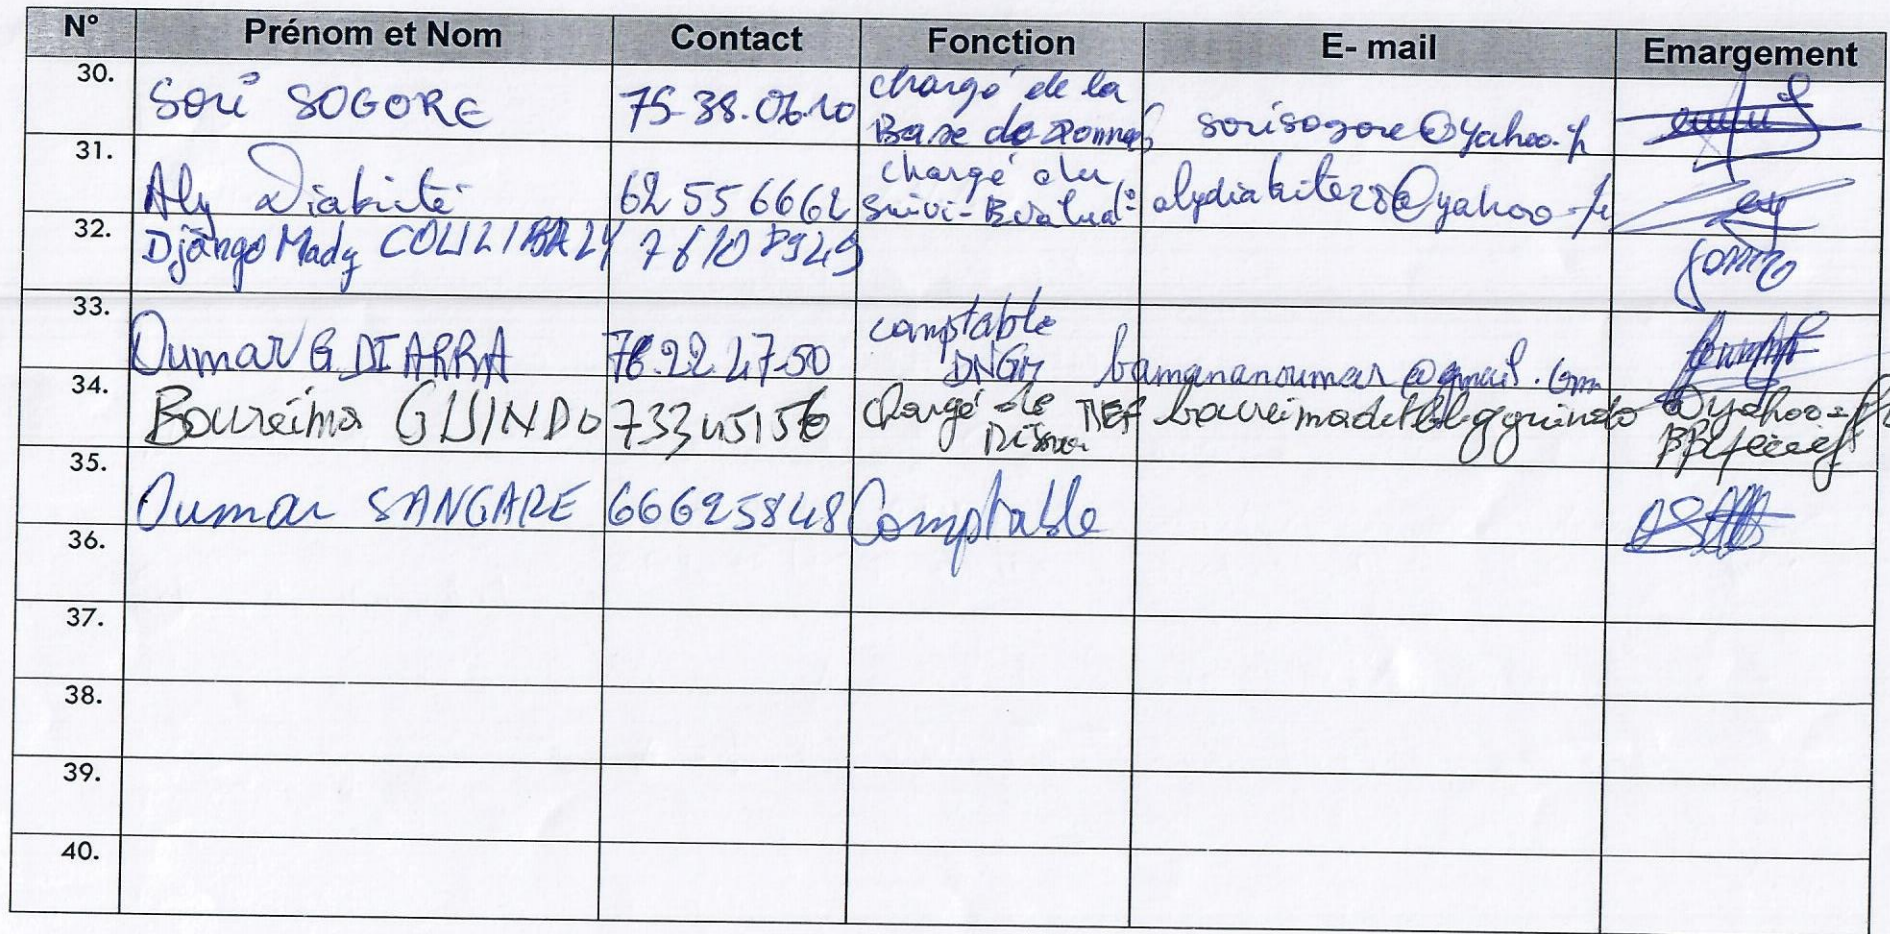 N° Prénom et Nom Contact Fonction E- mail Emargement
30. Sori SOGORE 75.38.06.10 chargé de la
Base de Données sorisogore@yahoo.fr
31. Aly Diabité 62556662 chargé du
Suivi-Evaluat° alydiabite28@yahoo.fr
32. Django Mady COULIBALY 76108949
33. Oumar G DIARRA 76.22.47.50 comptable
DNGM bamananoumar@gmail.com
34. Boureima GUINDO 73345156 Chargé de
35. Oumar SANGARE 66625848 Comptable
36.
37.
38.
39.
40.